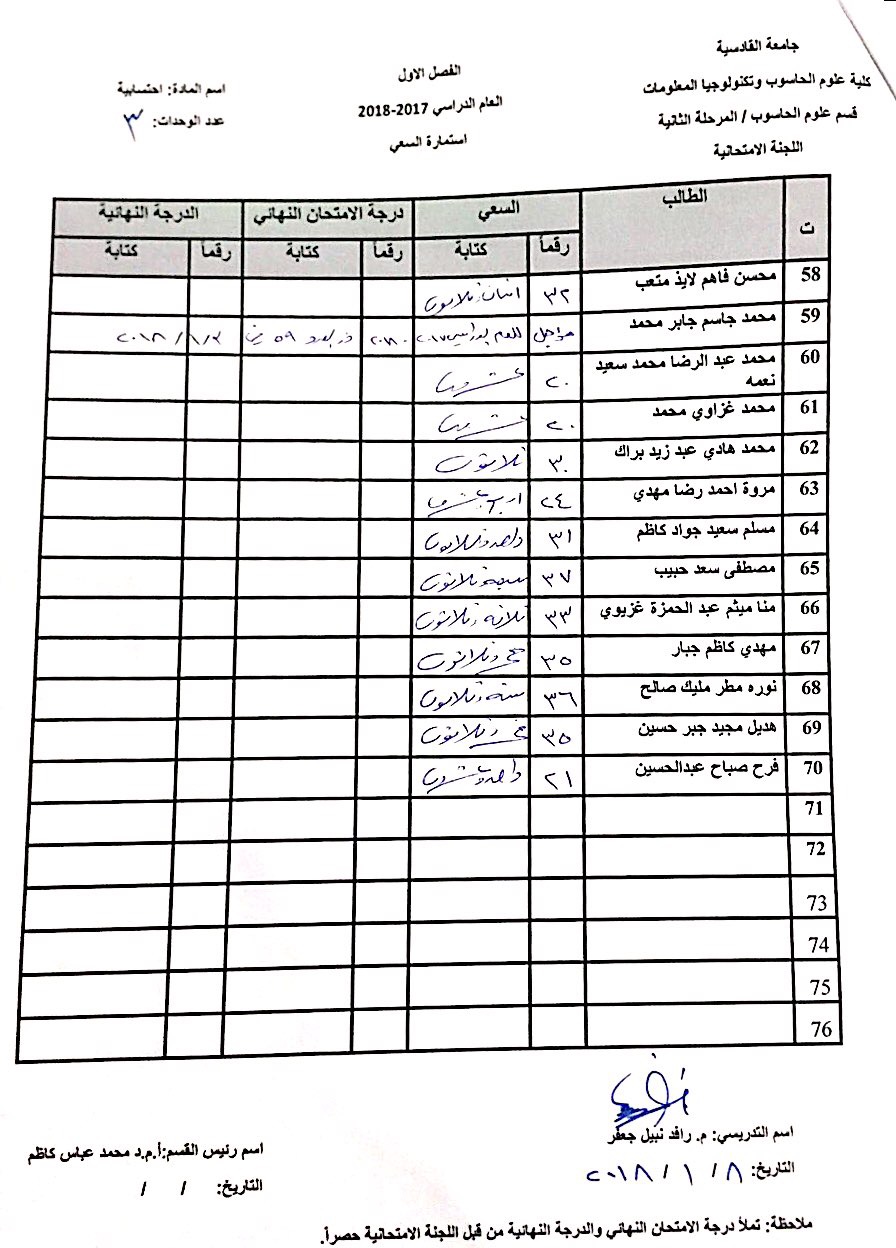 جامعة القادسية
كلية علوم الحاسوب وتكنولوجيا المعلومات
قسم علوم الحاسوب / المرحلة الثانية
اللجنة الامتحانية
الفصل الاول
العام الدراسي 2017-2018
استمارة السعي
اسم المادة: احتسابية
عدد الوحدات: ٣
ت الطالب السعي درجة الامتحان النهائي الدرجة النهائية
رقماً كتابة رقماً كتابة رقماً كتابة
58 محسن فاهم لايذ متعب ٣٢ اثنان وثلاثون
59 محمد جاسم جابر محمد مؤجل للعام الدراسي ٢٠١٧ ٥٩ ٢٠١٨/١/٣
60 محمد عبد الرضا محمد سعيد نعمه ٢٠ عشرون
61 محمد غزاوي محمد ٢٠ عشرون
62 محمد هادي عبد زيد براك ٣٠ ثلاثون
63 مروة احمد رضا مهدي ٢٤
64 مسلم سعيد جواد كاظم ٣١ واحد وثلاثون
65 مصطفى سعد حبيب ٣٧ سبعة وثلاثون
66 منا ميثم عبد الحمزة غزيوي ٣٣ ثلاثة وثلاثون
67 مهدي كاظم جبار ٣٥ خمس وثلاثون
68 نوره مطر مليك صالح ٣٦ ستة وثلاثون
69 هديل مجيد جبر حسين ٣٥ خمس وثلاثون
70 فرح صباح عبدالحسين ٢١ واحد وعشرون
71
72
73
74
75
76
اسم التدريسي: م. رافد نبيل جعفر
التاريخ: ٨ / ١ / ٢٠١٨
اسم رئيس القسم:أ.م.د محمد عباس كاظم
التاريخ: / /
ملاحظة: تملأ درجة الامتحان النهائي والدرجة النهائية من قبل اللجنة الامتحانية حصراً.